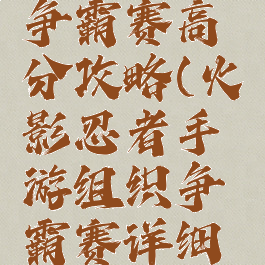 争霸赛高
分攻略(火
影忍者手
游组织争
霸赛详细